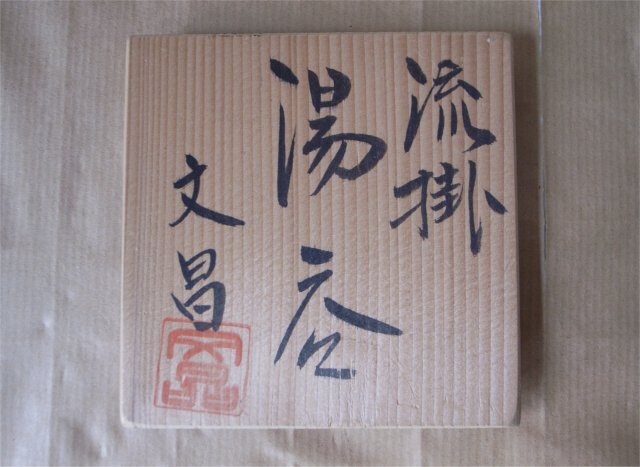 流掛
湯呑
文昌